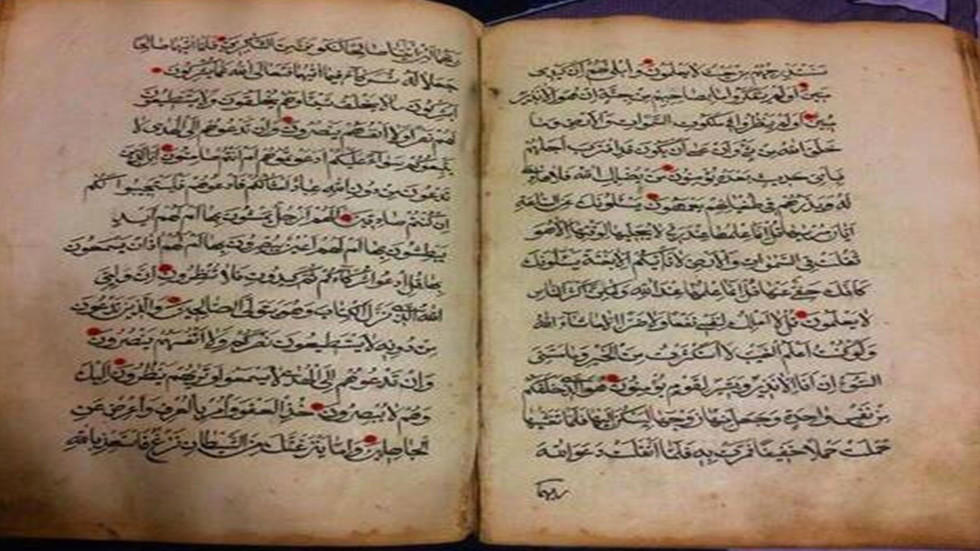 سنستدرجهم من حيث لا يعلمون واملي لهم ان كيدي
متين اولم يتفكروا ما بصاحبهم من جنة ان هو الا نذير
مبين اولم ينظروا في ملكوت السموات والارض وما
خلق الله من شيء وان عسى ان يكون قد اقترب اجلهم
فباي حديث بعده يؤمنون من يضلل الله فلا هادي
له ويذرهم في طغيانهم يعمهون يسئلونك عن الساعة
ايان مرسيها قل انما علمها عند ربي لا يجليها لوقتها الا هو
ثقلت في السموات والارض لا تأتيكم الا بغتة يسئلونك
كانك حفي عنها قل انما علمها عند الله ولكن اكثر الناس
لا يعلمون قل لا املك لنفسي نفعا ولا ضرا الا ما شاء الله
ولو كنت اعلم الغيب لاستكثرت من الخير وما مسني
السوء ان انا الا نذير وبشير لقوم يؤمنون هو الذي خلقكم
من نفس واحدة وجعل منها زوجها ليسكن اليها فلما تغشيها
حملت حملا خفيفا فمرت به فلما اثقلت دعوا الله
ربهما
ربهما لئن اتيتنا صالحا لنكونن من الشاكرين فلما اتيهما صالحا
جعلا له شركاء فيما اتيهما فتعالى الله عما يشركون
ايشركون ما لا يخلق شيئا وهم يخلقون ولا يستطيعون
لهم نصرا ولا انفسهم ينصرون وان تدعوهم الى الهدى لا
يتبعوكم سواء عليكم ادعوتموهم ام انتم صامتون ان الذين
تدعون من دون الله عباد امثالكم فادعوهم فليستجيبوا لكم
ان كنتم صادقين الهم ارجل يمشون بها ام لهم ايد
يبطشون بها ام لهم اعين يبصرون بها ام لهم اذان يسمعون
بها قل ادعوا شركاءكم ثم كيدون فلا تنظرون ان وليي
الله الذي نزل الكتاب وهو يتولى الصالحين والذين تدعون
من دونه لا يستطيعون نصركم ولا انفسهم ينصرون
وان تدعوهم الى الهدى لا يسمعوا وتريهم ينظرون اليك
وهم لا يبصرون خذ العفو وامر بالعرف واعرض عن
الجاهلين واما ينزغنك من الشيطان نزغ فاستعذ بالله